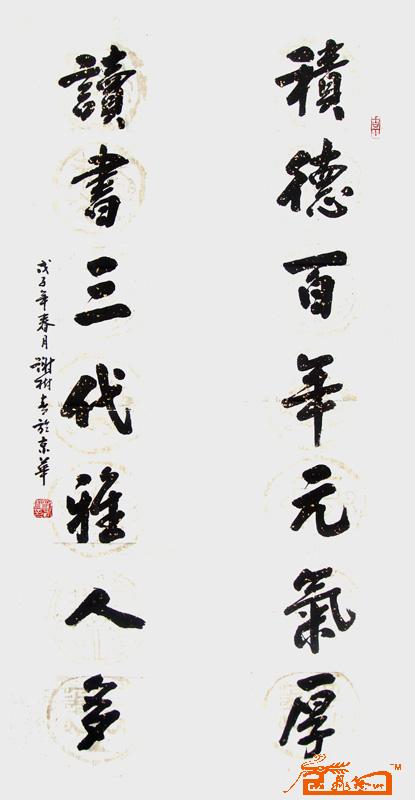 積德百年元氣厚
讀書三代雅人多
戊子年春月謝樹青於京華